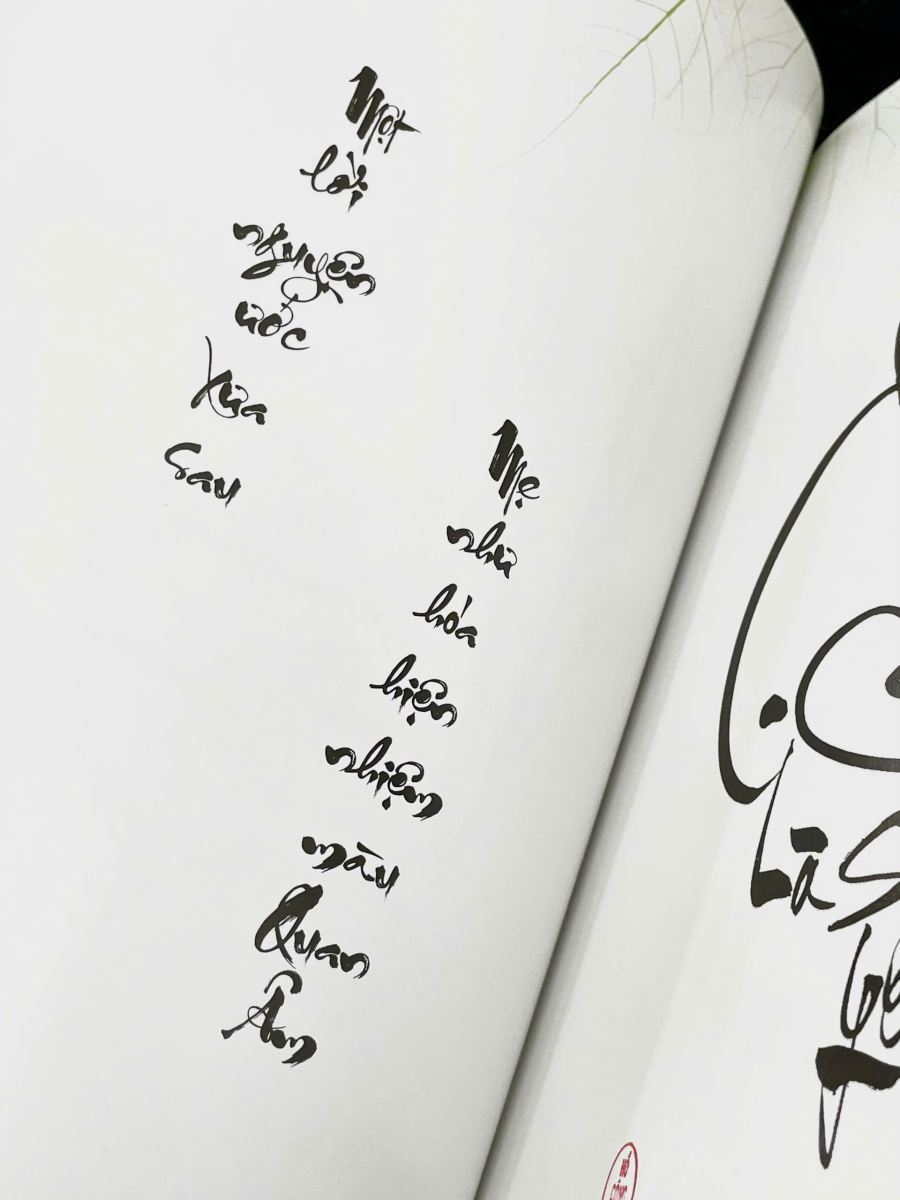 Một
lời
nguyện
ước
xưa
sau
Mẹ
như
hóa
hiện
nhiệm
màu
Quan
Âm
Là